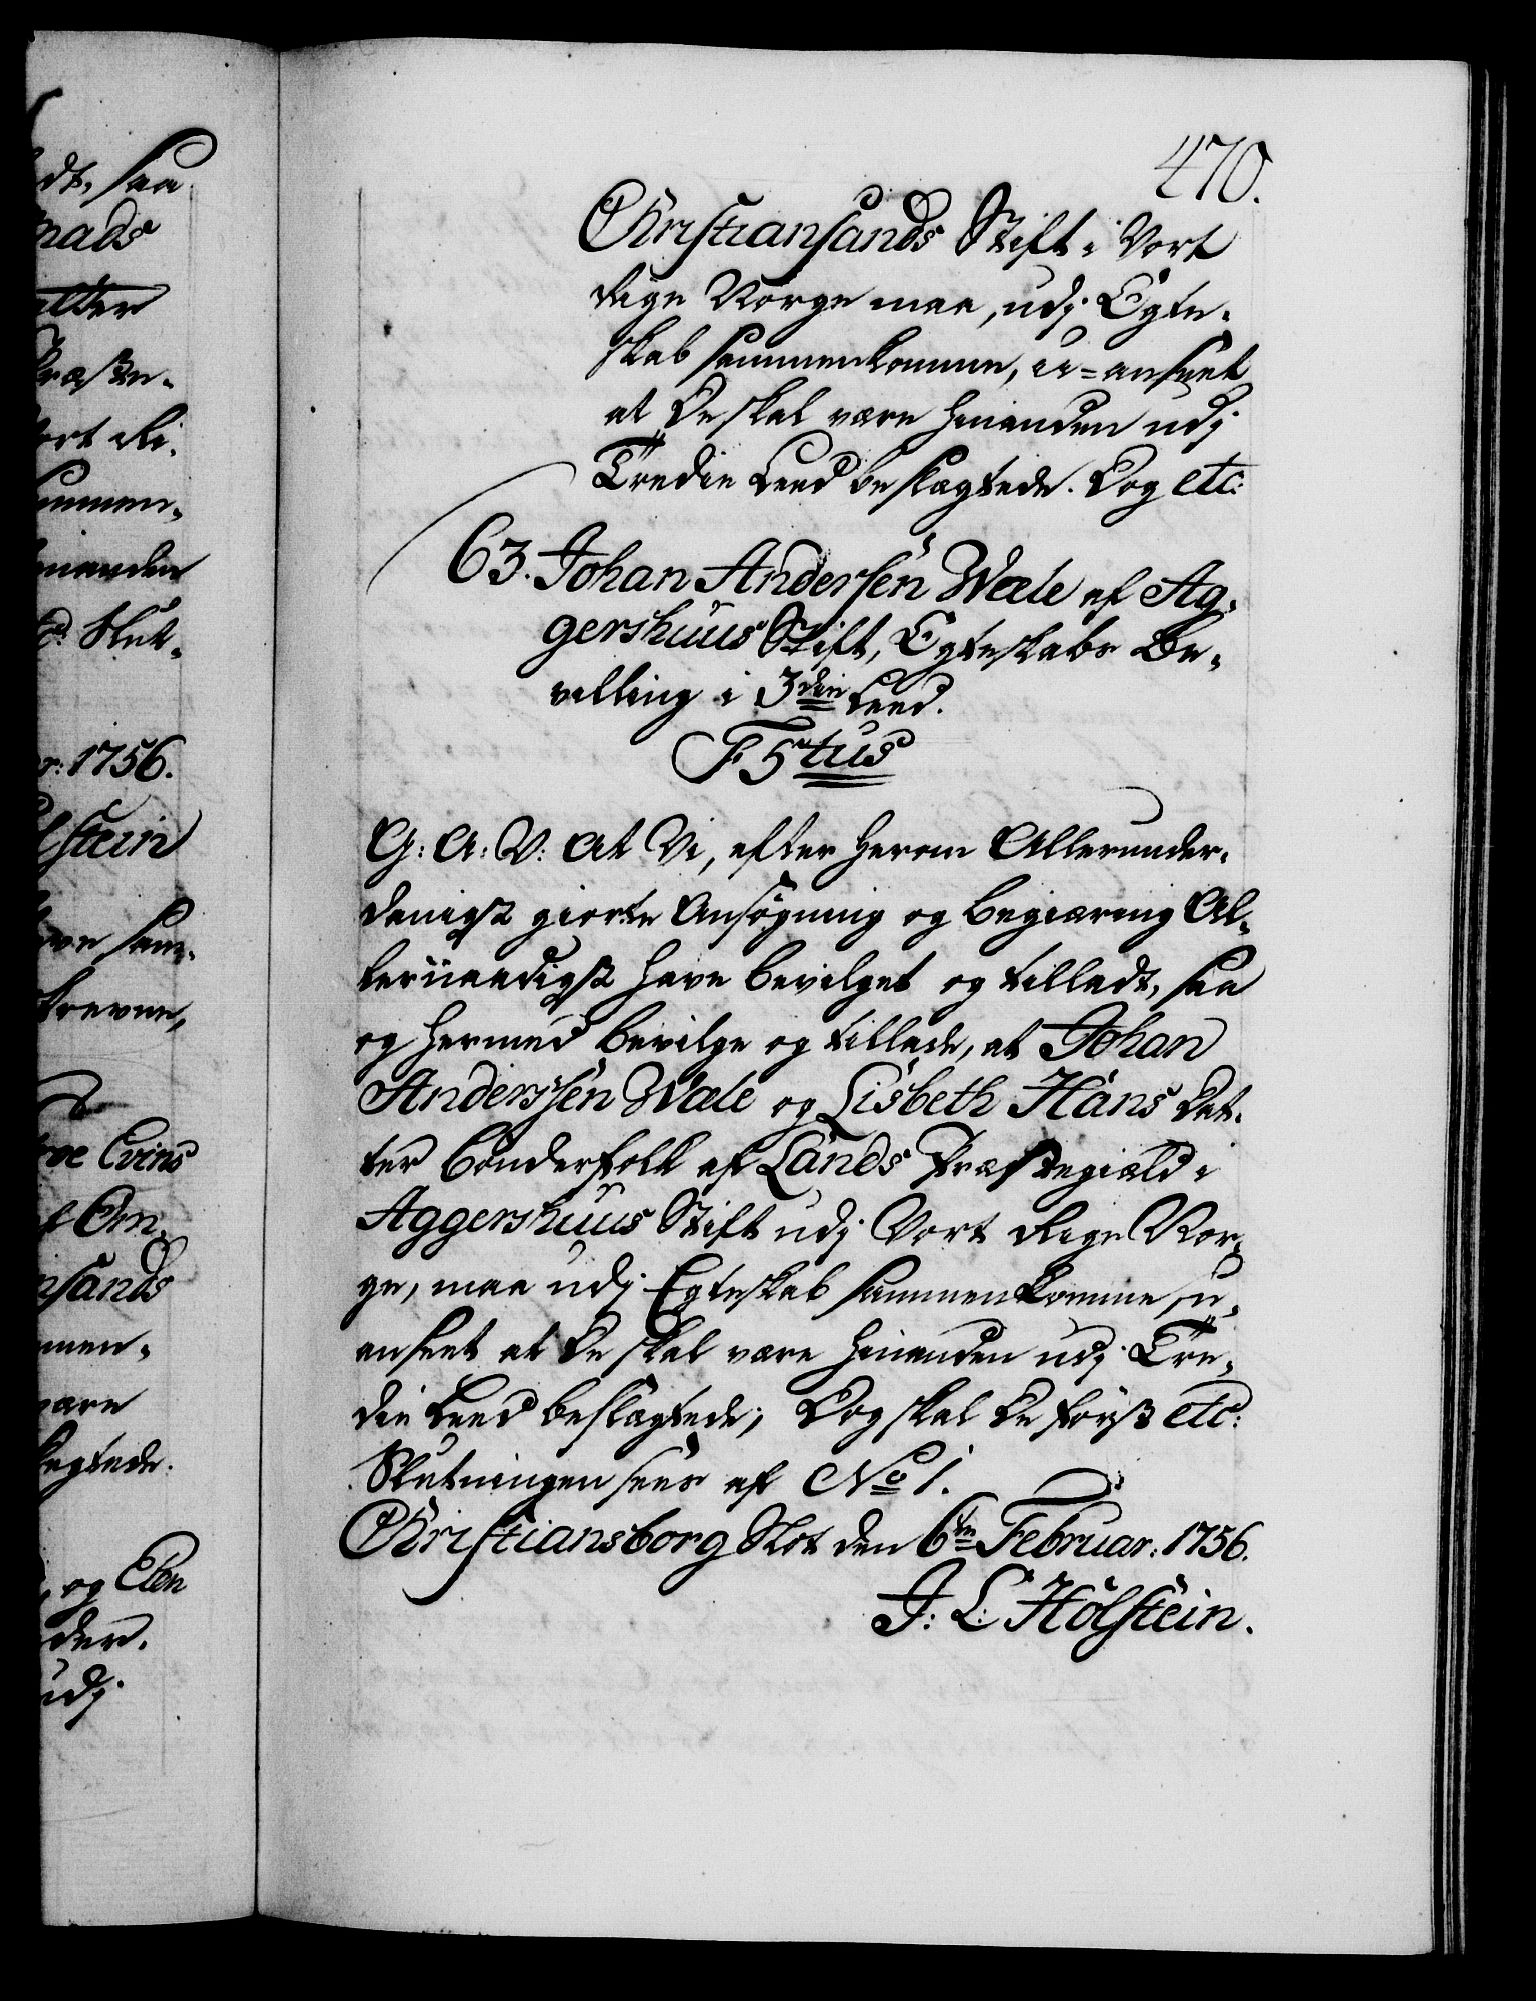 470.
Christiansands Stift i Vort
Rige Norge maa, udj Egte-
skab sammenkomme, u=anseet
at De skal være hinanden udj
Tredie Leed beslægtede. Dog etc:
63. Johan Andersen Wæle af Ag-
gershuus Stift, Egteskabs Be-
villing i 3die Leed.
F. 5tus
G: A: V: At Vi, efter herom Allerunder-
danigst giorte Ansøgning og Begiæring Al-
lernaadigst have bevilget og tilladt, saa
og hermed bevilge og tillade, at Johan
Anderssen Wæle og Lisbeth Hans Dat-
ter Bønderfolk af Lands Præstegiæld i
Aggershuus Stift udj Vort Rige Nor-
ge, maa udj Egteskab sammenkomme, u-
anseet at De skal være hinanden udj Tre-
die Leed beslægtede; Dog skal De først etc:
Slutningen sees af No 1.
Christiansborg Slot den 6te Februar: 1756.
J: L: Holstein.
dt, saa
mads
atter
Præste-
ort Ri-
ammen-
inanden
Slut-
r: 1756.
lstein
sam-
krevne,
Evins
nsands
mmen-
være
lægtede.
, og Elen
nder-
udj